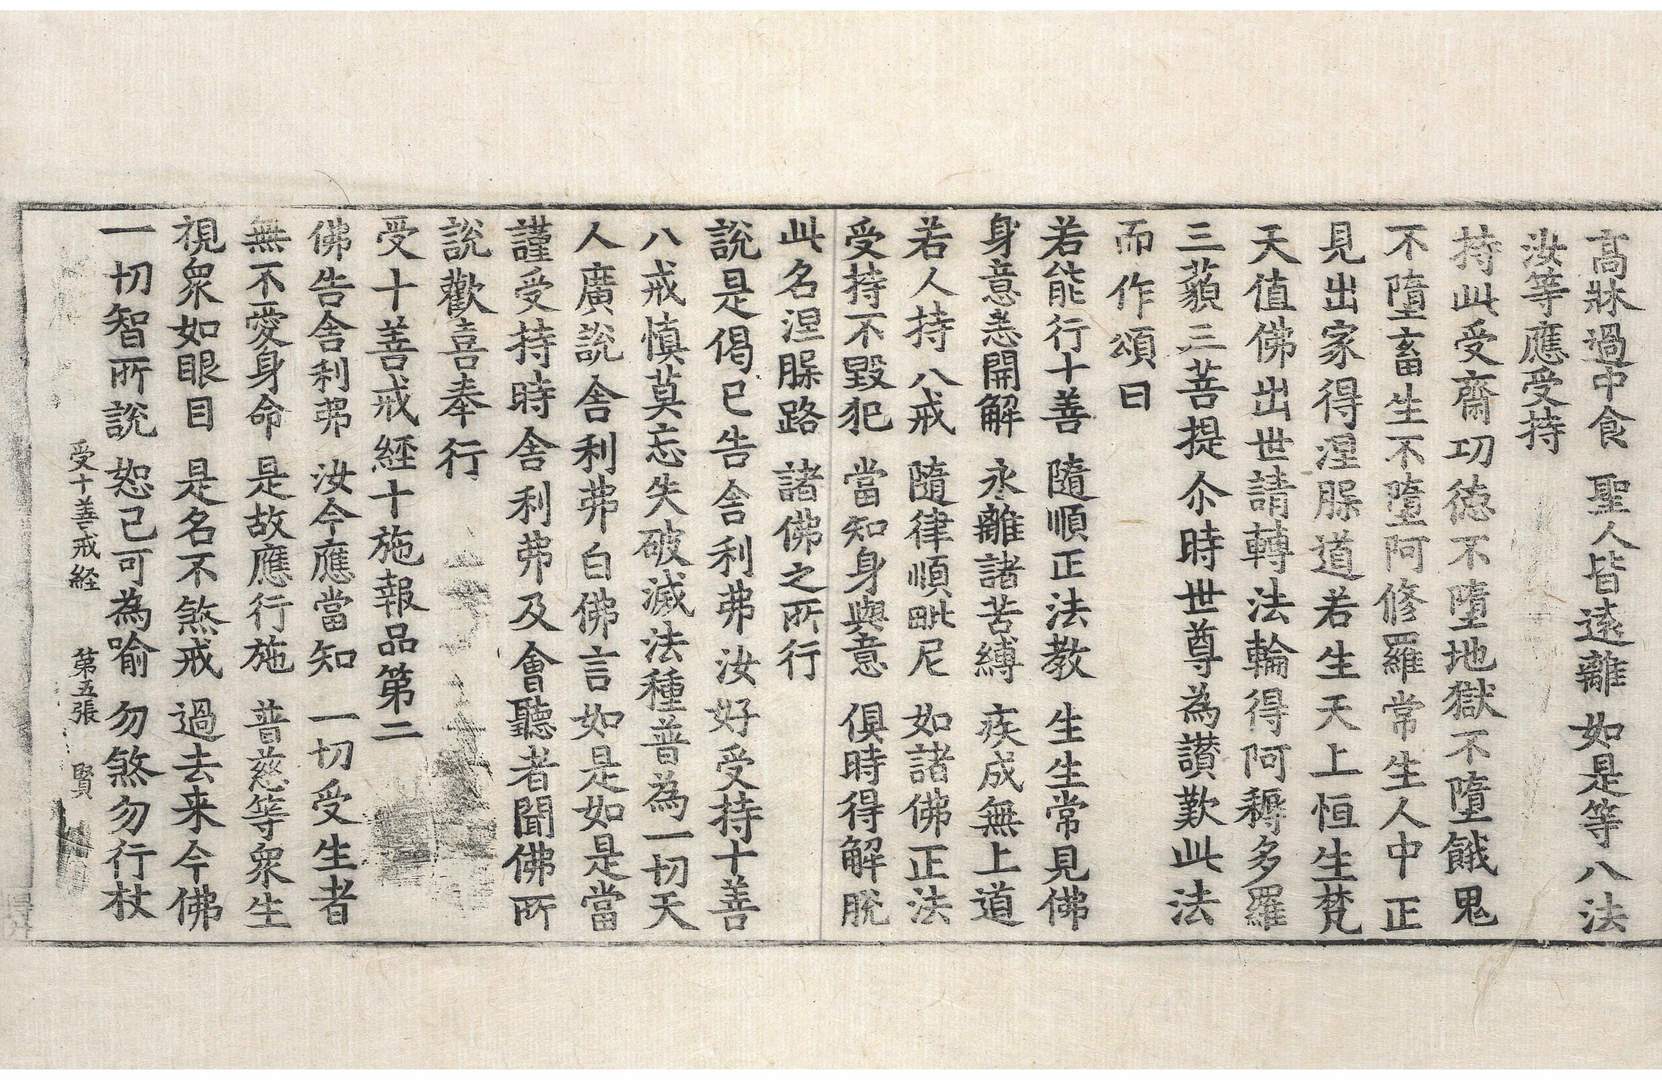 高牀過中食　聖人皆遠離　如是等八法
汝等應受持
持此受齋功德不墮地獄不墮餓鬼
不墮畜生不墮阿修羅常生人中正
見出家得涅槃道若生天上恒生梵
天值佛出世請轉法輪得阿耨多羅
三藐三菩提尒時世尊為讃歎此法
而作頌曰
若能行十善　隨順正法教　生生常見佛
身意恚開解　永離諸苦縛　疾成無上道
若人持八戒　隨律順毗尼　如諸佛正法
受持不毀犯　當知身與意　俱時得解脫
此名涅槃路　諸佛之所行
說是偈已告舍利弗汝好受持十善
八戒慎莫忘失破滅法種普為一切天
人廣說舍利弗白佛言如是如是當
謹受持時舍利弗及會聽者聞佛所
說歡喜奉行
受十善戒經十施報品第二
佛告舍利弗　汝今應當知　一切受生者
無不愛身命　是故應行施　普慈等衆生
視衆如眼目　是名不煞戒　過去来今佛
一切智所說　恕己可為喻　勿煞勿行杖
受十善戒経　第五張　賢